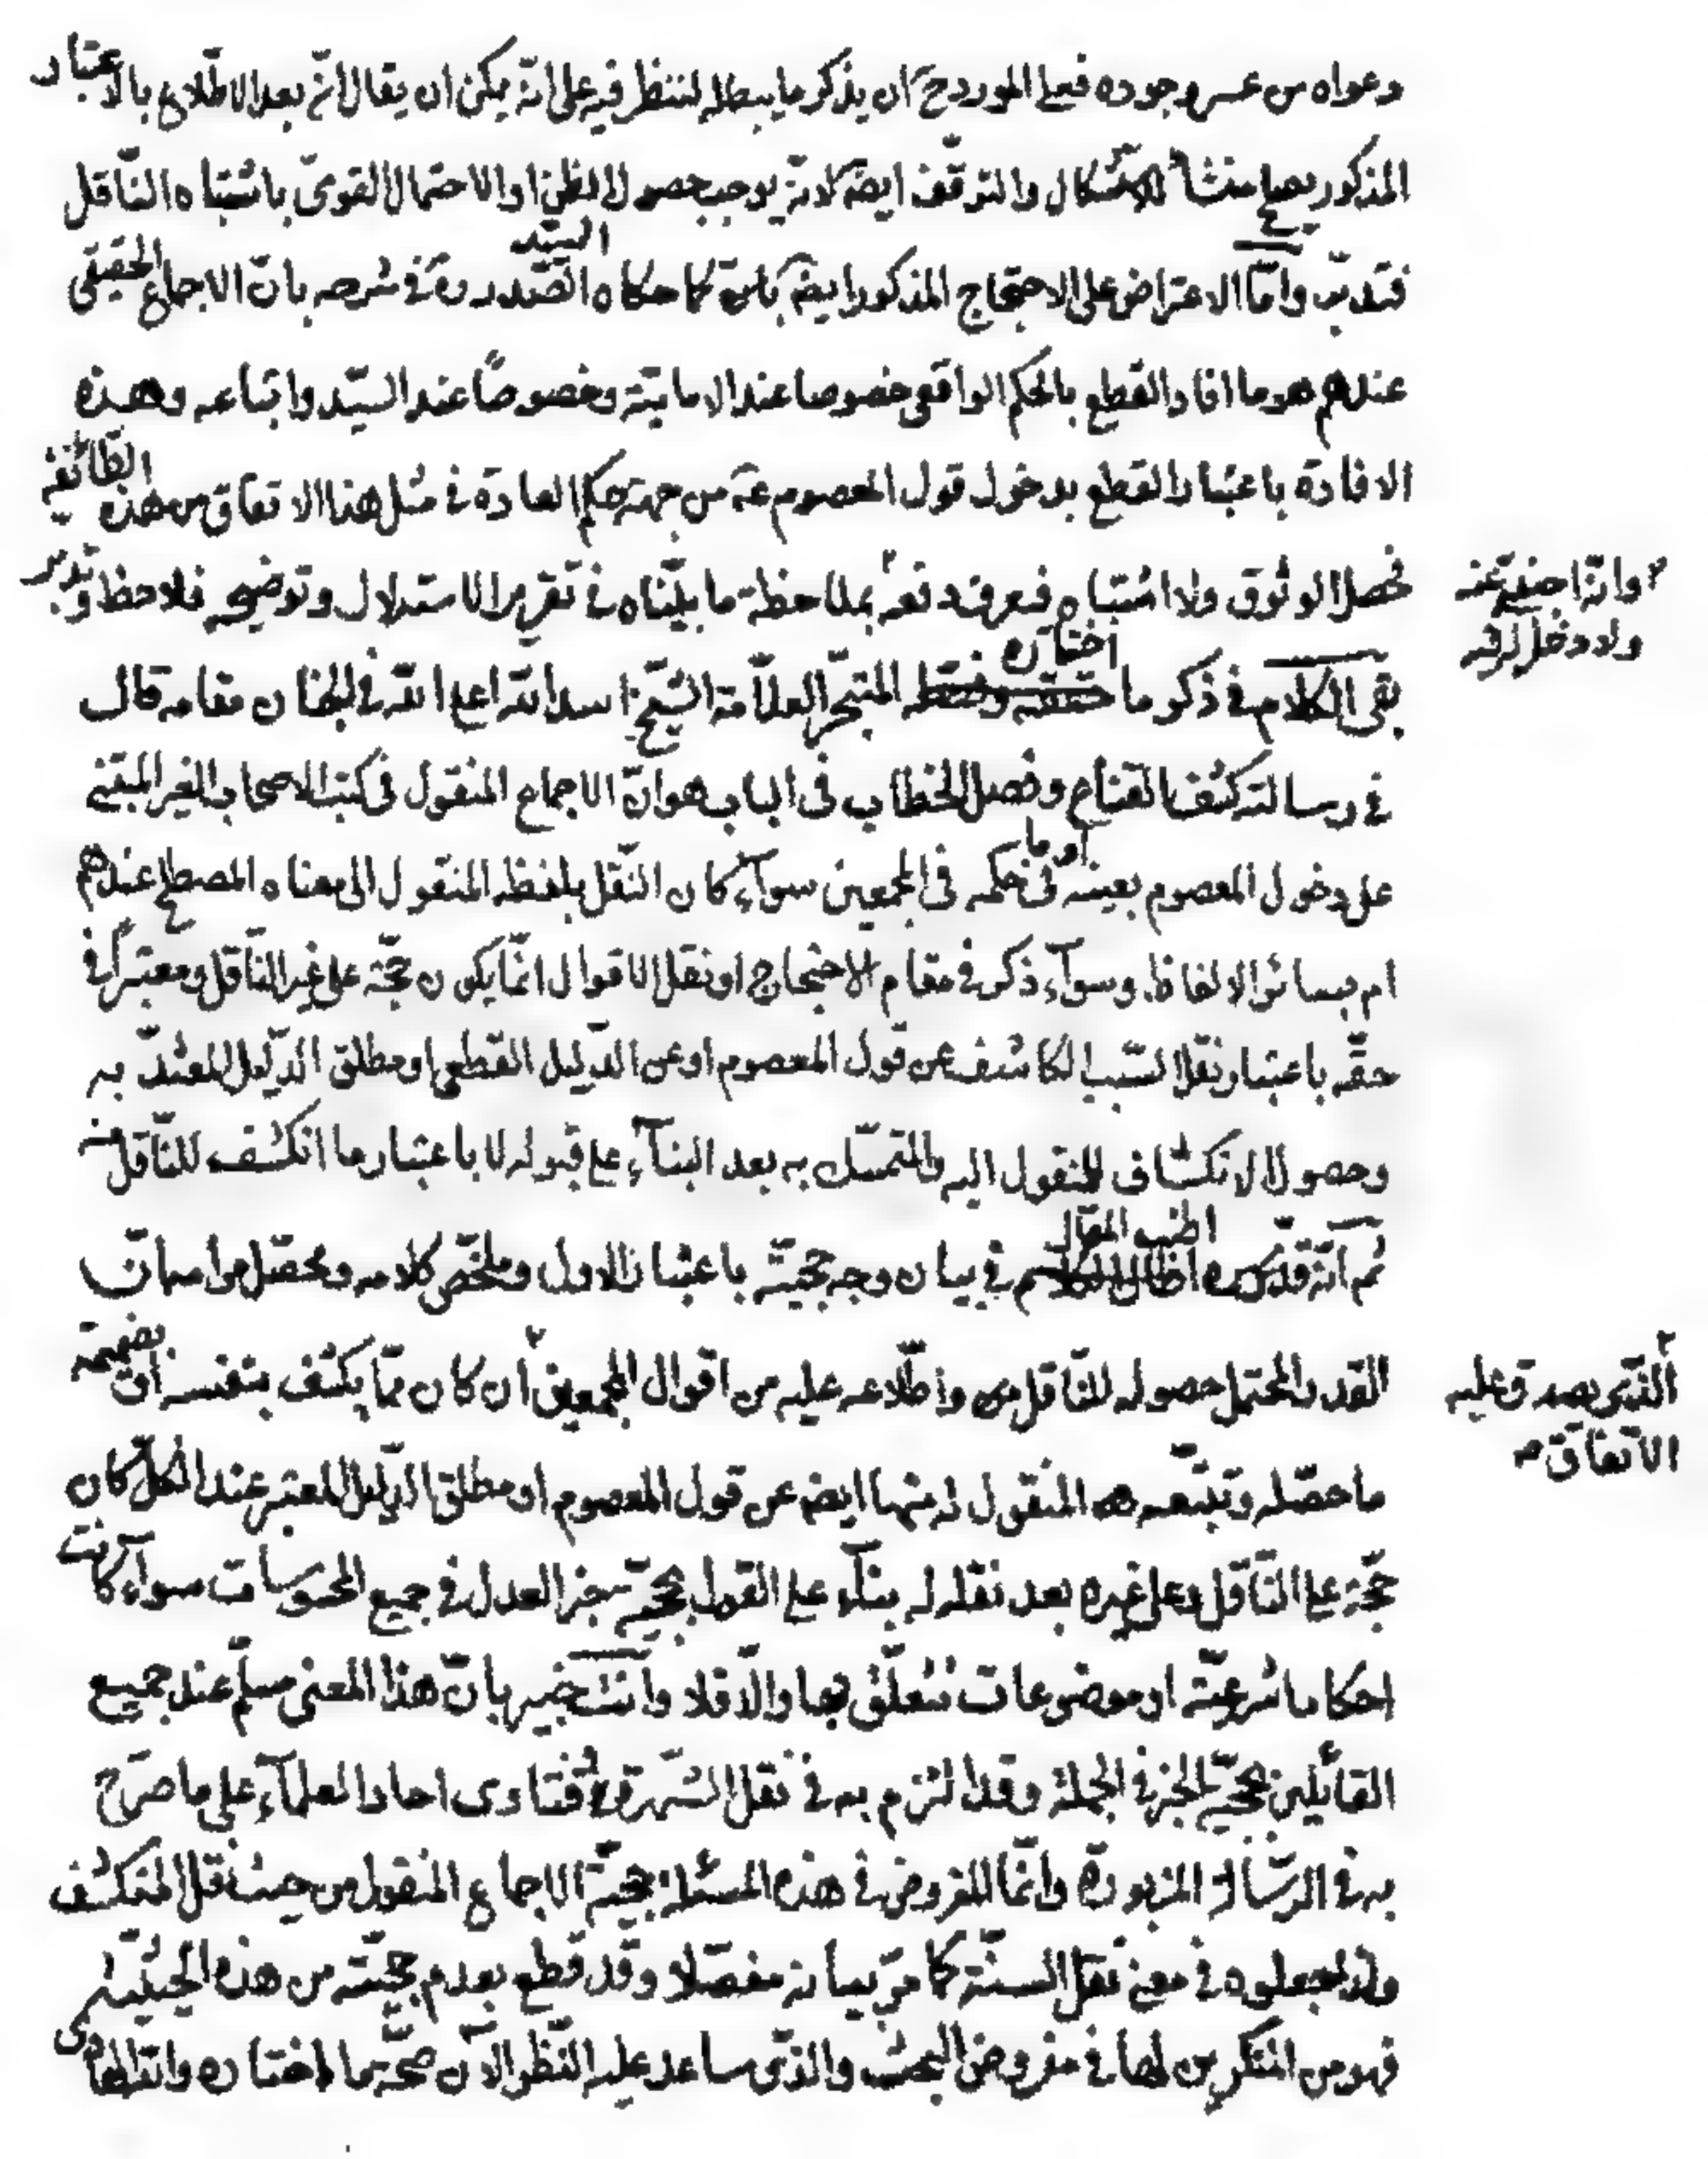 دعواه من عسر وجوده فعلى المورد ح ان يذكر ما يبطله لننظر فيه على انّه يمكن ان يقال انّ بعد الاطّلاع بالاعتبار
المذكور يصلح منشأ للاشكال والتوقّف ايضا لانّه يوجب حصول الظن او الاحتمال القوىّ باشتباه النّاقل
فتدبّر وامّا الاعتراض على الاحتجاج المذكور ايضا كما حكاه السيّد الصّدر ره فى شرحه بانّ الاجماع الحقيقى
عندهم هو ما افاد القطع بالحكم الواقعى خصوصا عند الاماميّة وخصوصًا عند السيّد واتباعه وهذه
الافادة باعتبار القطع بدخول قول المعصوم عه من جهة حكم العادة فى مثل هذا الاتفاق من هذه الطّائفة
فحصل الوثوق ولا اشتباه فيعرف دفعه بملاحظة ما بيّنّاه فى تقرير الاستدلال وتوضيحه فلاحظ وتدبّر
وانّها اجنبيّة عنه
ولا دخل له فيه
بقى الكلام فى ذكر ما اختاره المتبحّر العلّامة الشّيخ اسد الله اعلى الله فى الجنان مقامه قال
فى رسالته كشف القناع وفصل الخطاب فى الباب هو انّ الاجماع المنقول فى كتب الاصحاب الغير المبتنى
على دخول المعصوم بعينه او ما فى حكمه فى المجمعين سوآء كان النّقل بلفظه المنقول الى معناه المصطلح عندهم
ام بسائر الالفاظ وسوآء ذكر فى مقام الاحتجاج او نقل الاقوال انّما يكون حجّة على غير النّاقل ومعتبرًا فى
حقّه باعتبار نقل السّبب الكاشف عن قول المعصوم او عن الدّليل القطعى او مطلق الدّليل المعتدّ به
وحصول الانكشاف للمنقول اليه والمتمسّك به بعد البنآء على قبوله لا باعتبار ما انكشف للنّاقل منه
ثم انّه قدّس سره اطنب المقال فى بيان وجه حجيّته باعتبار الاول وملخّص كلامه ومحصّل مرامه انّ
القدر المحتمل حصوله للنّاقل واطّلاعه عليه من اقوال المجمعين ان كان ممّا يكشف بنفسه او بضميمة
الّذى يصدق عليه
الاتّفاق
ما حصّله وتتبّعه المنقول له منها ايضا عن قول المعصوم او مطلق الدّليل المعتبر عند الكلّ كان
حجّة على النّاقل وعلى غيره بعد نقله له بنآء على القول بحجيّة خبر العدل فى جميع المحسوسات سوآء كانت
احكاما شرعيّة او موضوعات تتعلّق بها والّا فلا وانت خبير بانّ هذا المعنى مسلّم عند جميع
القائلين بحجيّة الخبر فى الجملة وقد التزم به فى نقل الشّهرة وفتاوى احاد العلمآء على ما صرّح
به فى الرّسالة المزبورة وانّما المفروض فى هذه المسئلة حجيّة الاجماع المنقول من حيث نقل المنكشف
ولذا جعلوه فى معنى نقل السنّة كما مرّ بيانه مفصّلا وقد قطع بعدم حجيّته من هذه الحيثيّة
فهو من المنكرين لها فى مفروض البحث والّذى ساعد عليه النّظر الآن صحّة ما اختاره